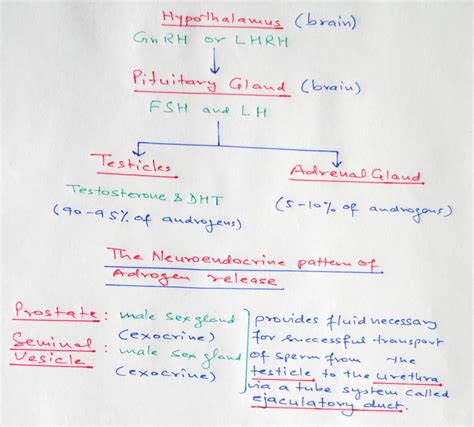 Hypothalamus (brain)
GnRH or LHRH
Pituitary Gland (brain)
FSH and LH
Testicles
Testosterone & DHT
(90-95% of androgens)
Adrenal Gland
(5-10% of androgens)
The Neuroendocrine pattern of
Adrogen release
Prostate : male sex gland
(exocrine)
Seminal : male sex gland
Vesicle (exocrine)
provides fluid necessary
for successful transport
of sperm from the
testicle to the urethra
via a tube system called
ejaculatory duct.